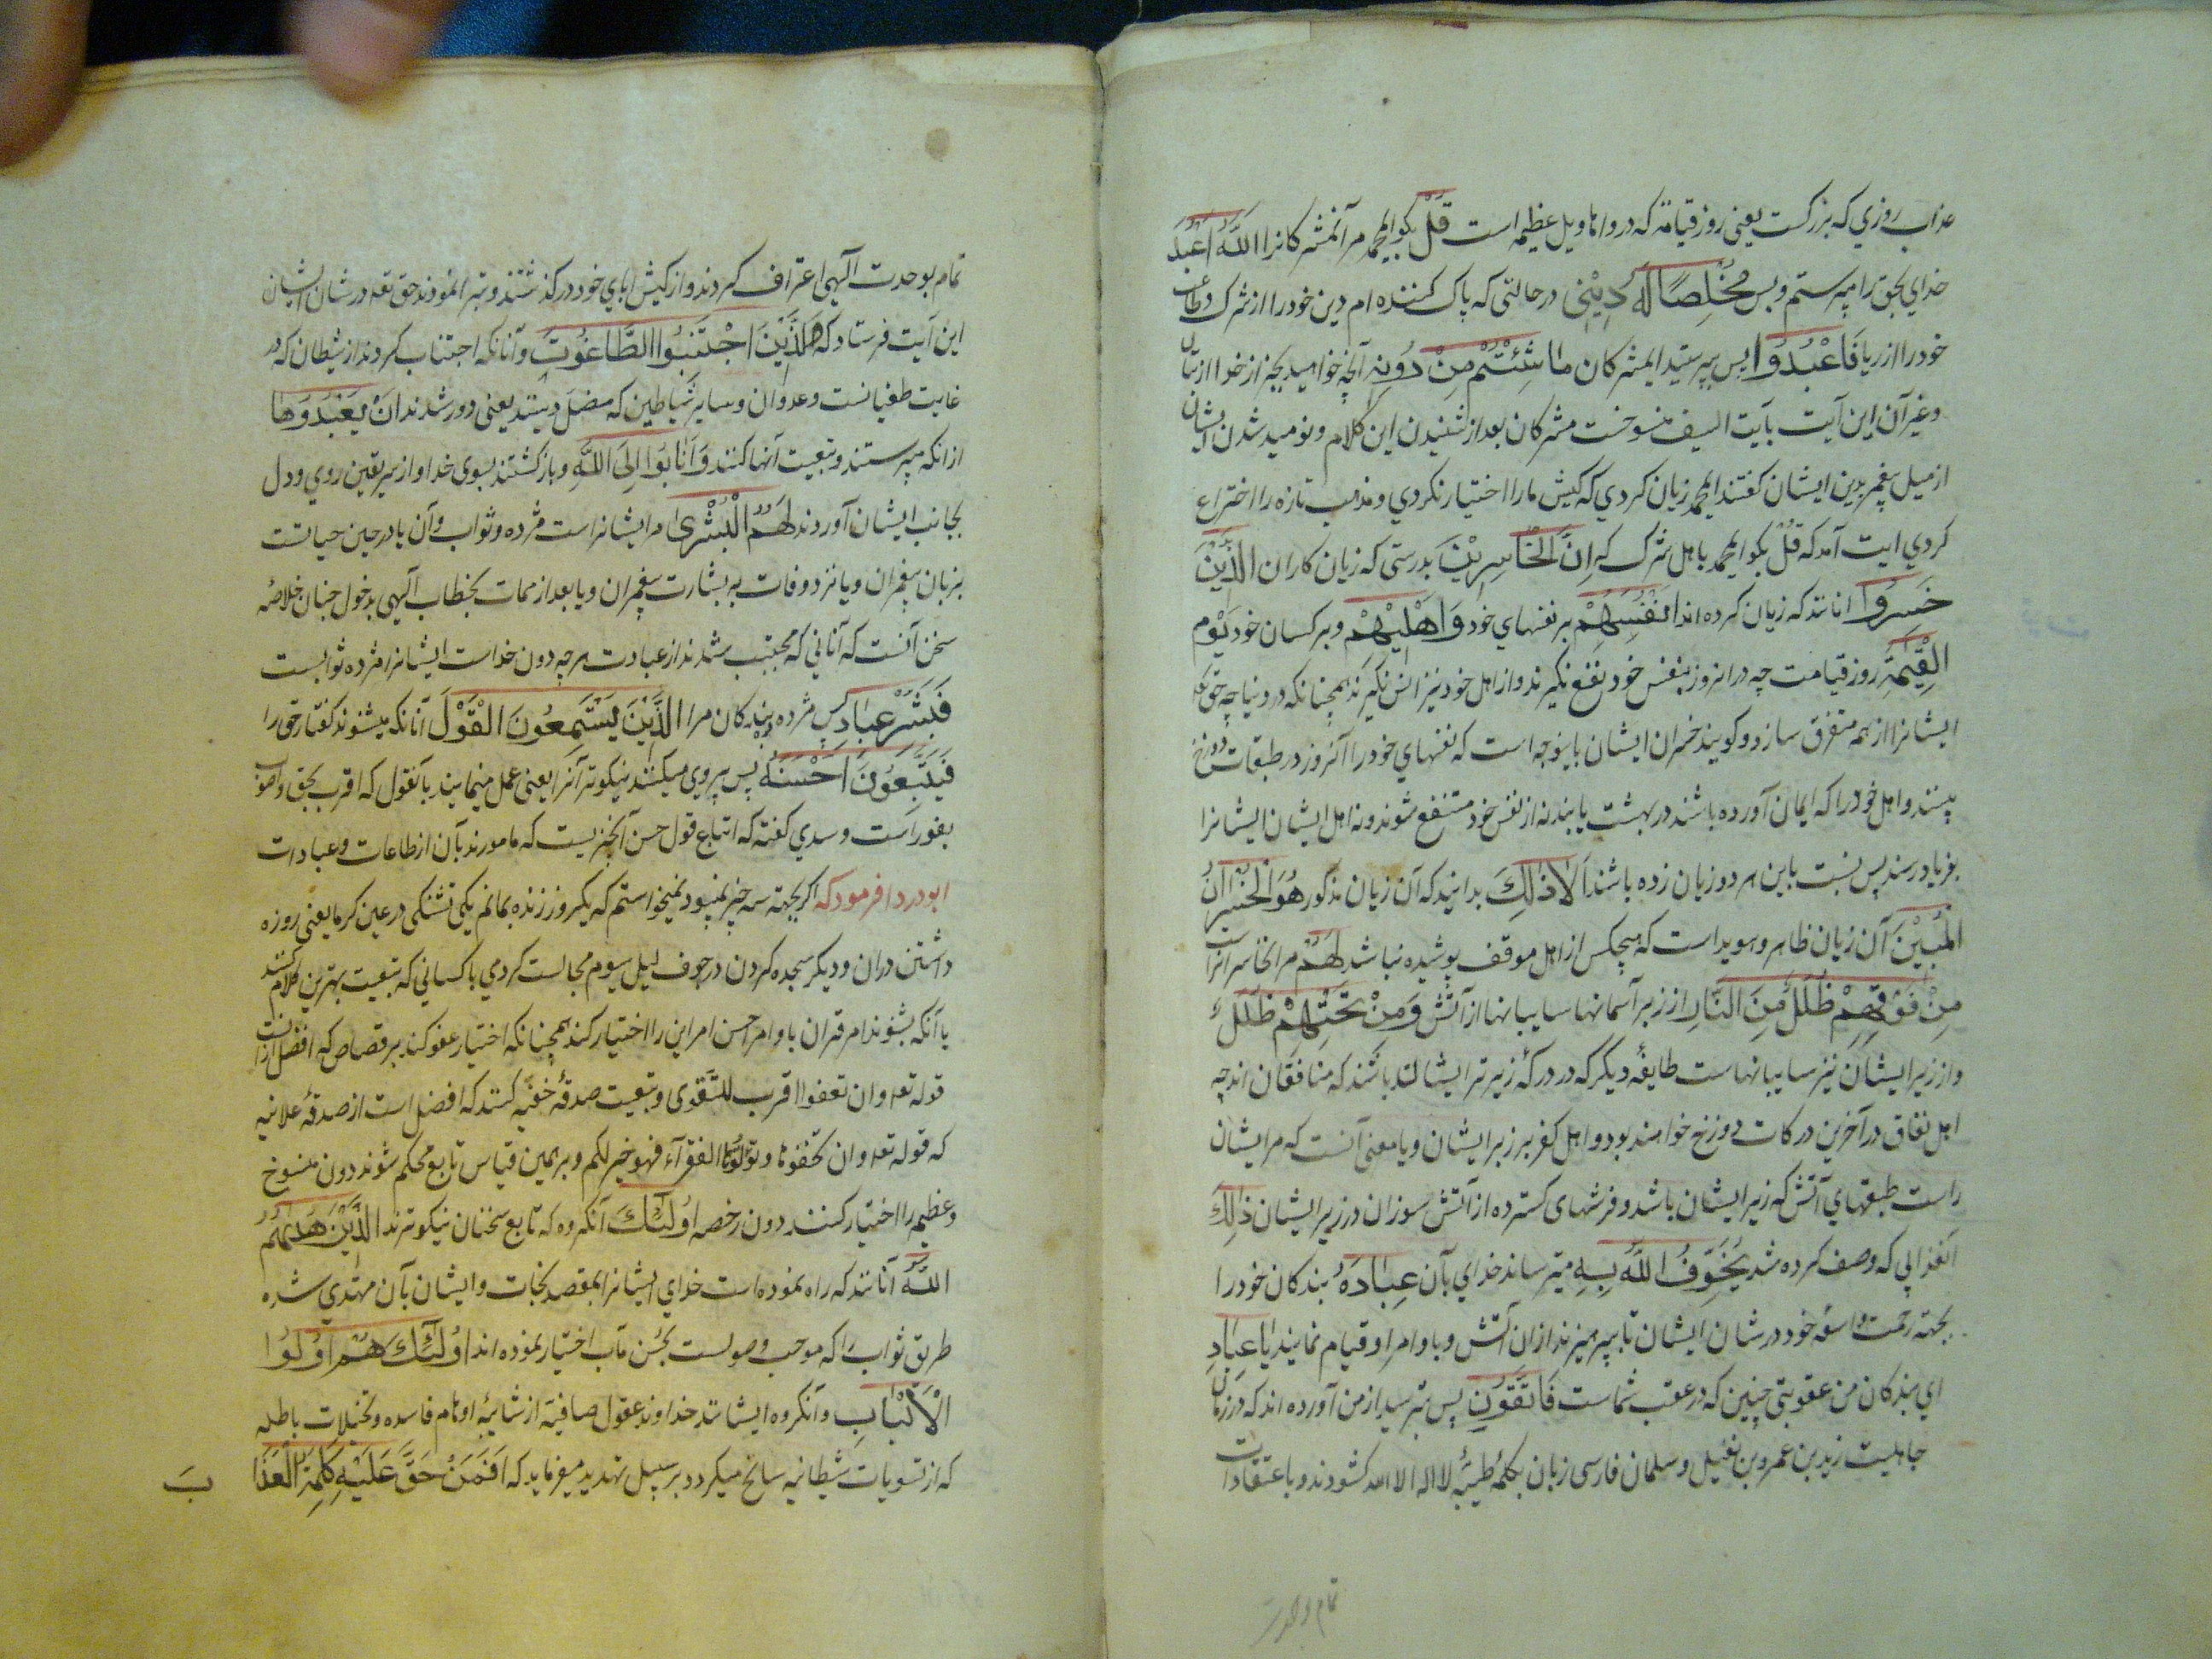 عذاب روزي كه بزركست يعنى روز قيامة كه در و اهاويل عظيمه است قُلْ بكو ايمحمد مر آنمشركانرا اللَّهَ اَعْبُدُ
خداي بحق را مى‌پرستم و بس مُخْلِصًا لَهُ دِيْنِى در حالتى كه پاك كننده ام دين خود را از شرك و طاعت
خود را از ريا فَاعْبُدُوا پس بپرستيد ايمشركان ما شِئْتُمْ مِنْ دُونِهِ آنچه خواهيد بجز از خدا از بتان
و غير آن اين آيت بآيت السيف منسوخست مشركان بعد از شنيدن اين كلام و نوميد شدن ايشان
از ميل پيغمبر بدين ايشان كفتند ايمحمد زيان كردي كه كيش ما را اختيار نكردي و مذهب تازه را اختراع
كردي ايت آمد كه قُلْ بكو ايمحمد با هل شرك كه اِنَّ الْخَاسِرِيْنَ بدرستى كه زيان كاران الَّذِيْنَ
خَسِرُوا انانند كه زيان كرده اند اَنْفُسَهُمْ بر نفسهاي خود وَاَهْلِيْهِمْ و بر كسان خود يَوْمَ
الْقِيٰمَةِ روز قيامت چه در انروز بنفس خود نفع نكيرند و از اهل خود نيز انس نكيرند همچنانكه در دنيا چه حق تعه
ايشانرا از همه متفرق سازد و كويند خسران ايشان باينوجه است كه نفسهاي خود را آنروز در طبقات دوزخ
بينند و اهل خود را كه ايمان آورده باشند در بهشت يابند نه از نفس خود منتفع شوند و نه اهل ايشان ايشانرا
بفرياد رسند پس نسبت باين هر دو زيان زده باشند اَلَا ذٰلِكَ بدانيد كه آن زيان مذكور هُوَ الْخُسْرَانُ
الْمُبِيْنُ آن زيان ظاهر و هويداست كه هيچكس از اهل موقف پوشيده نباشد لَهُمْ مر انخاسرانراست
مِنْ فَوْقِهِمْ ظُلَلٌ مِنَ النَّارِ از زبر آسمانها سايبانها از آتش وَمِنْ تَحْتِهِمْ ظُلَلٌ
و از زير ايشان نيز سايبانهاست طايفهٔ ديكر كه در دركهٔ زيرتر ايشانند باشند كه منافقان اند چه
اهل نفاق در آخرين دركات دوزخ خواهند بود و اهل كفر بر زبر ايشان و يا معنى آنست كه مر ايشان
راست طبقهاي آتش كه زير ايشان باشد و فرشهاى كسترده از آتش سوزان در زير ايشان ذٰلِكَ
آنعذابي كه وصف كرده شد يُخَوِّفُ اللّٰهُ بِهِ ميترساند خداي بآن عِبَادَهُ بندكان خود را
بجهته رحمت واسعه خود در شان ايشان تا بپرهيزند از ان آتش و باوامر او قيام نمايند يَا عِبَادِ
اي بندكان من عقوبتى چنين كه در عقب شماست فَاتَّقُوْنِ پس بترسيد از من آورده اند كه در زمان
جاهليت زيد بن عمرو بن نفيل و سلمان فارسى زبان بكلمهٔ طيبهٔ لا اله الا الله كشودند و باعتقادات
تمام بوحدت
تمام بوحدت آلهى اعتراف كردند و از كيش اباي خود در كذشتند و تبرا نمودند حق تعه در شان ايشان
اين آيت فرستاد كه وَالَّذِيْنَ اجْتَنَبُوا الطَّاغُوْتَ و آنانكه اجتناب كردند از شيطان كه در
غايت طغيانست و عدوان و ساير شياطين كه مضل دينند يعنى دور شدند اَنْ يَعْبُدُوْهَا
از انكه بپرستند و تبعيت آنها كنند وَاَنَابُوا اِلَى اللَّهِ و باز كشتند بسوى خدا و از سر يقين روي و دل
بجانب ايشان آوردند لَهُمُ الْبُشْرٰى مر ايشانراست مژده و ثواب و آن يا در حين حياتست
بزبان پيغمبران و يا نزد وفات به بشارت پيغمبران و يا بعد از ممات بخطاب آلهى بدخول جنان خلاصهٔ
سخن آنست كه آناني كه مجتنب شدند از عبادت هر چه دون خداست ايشانرا مژده ثوابست
فَبَشِّرْ عِبَادِ پس مژده ده بندكان مرا الَّذِيْنَ يَسْتَمِعُونَ الْقَوْلَ آنانكه ميشنوند كفتار حق را
فَيَتَّبِعُوْنَ اَحْسَنَهُ پس پيروي ميكنند نيكوتر آنرا يعنى عمل مينمايند بآنقول كه اقرب بحق و اصوب
بفور است و سدي كفته كه اتباع قول حسن آنچيزيست كه مامورند بآن از طاعات و عبادات
ابو دردا فرمود كه اكر بجهته سه چيز نميبود نميخواستم كه يكروز زنده بمانم يكى تشنكى در عين كرما يعنى روزه
داشتن در ان و ديكر سجده كردن در جوف ليل سيوم مجالست كردن با كساني كه تبعيت بهترين كلام كنند
يا آنكه بشنوند امر قران با وامر احسن امر اين را اختيار كند همچنانكه اختيار عفو كند بر قصاص كه افضل از انست
قوله تعه و ان تعفوا اقرب للتقوى و تبعيت صدقهٔ خفيه كنند كه افضل است از صدقهٔ علانيه
كه قوله تعه و ان تخفوها و تؤتوها الفقرآء فهو خير لكم و بر همين قياس تابع محكم شوند دون منسوخ
و عظيمه را اختيار كنند دون رخصه اُولٰئِكَ آنكروه كه تابع سخنان نيكوترند الَّذِيْنَ هَدٰيهُمُ
اللّٰهُ آنانند كه راه نموده است خداي ايشانرا بمقصد نجات و ايشان بآن مهتدي شده
طريق ثواب را كه موجب وصولست بحسن مآب اختيار نموده اند اُولٰئِكَ هُمْ اُولُوا
الْاَلْبَابِ و آنكروه ايشانند خداوند عقول صافيه از شايبهٔ اوهام فاسده و تخيلات باطله
كه از تسويات شيطانيه سانح ميكردد بر سبيل تهديد ميفرمايد كه اَفَمَنْ حَقَّ عَلَيْهِ كَلِمَةُ الْعَذَا
بَ